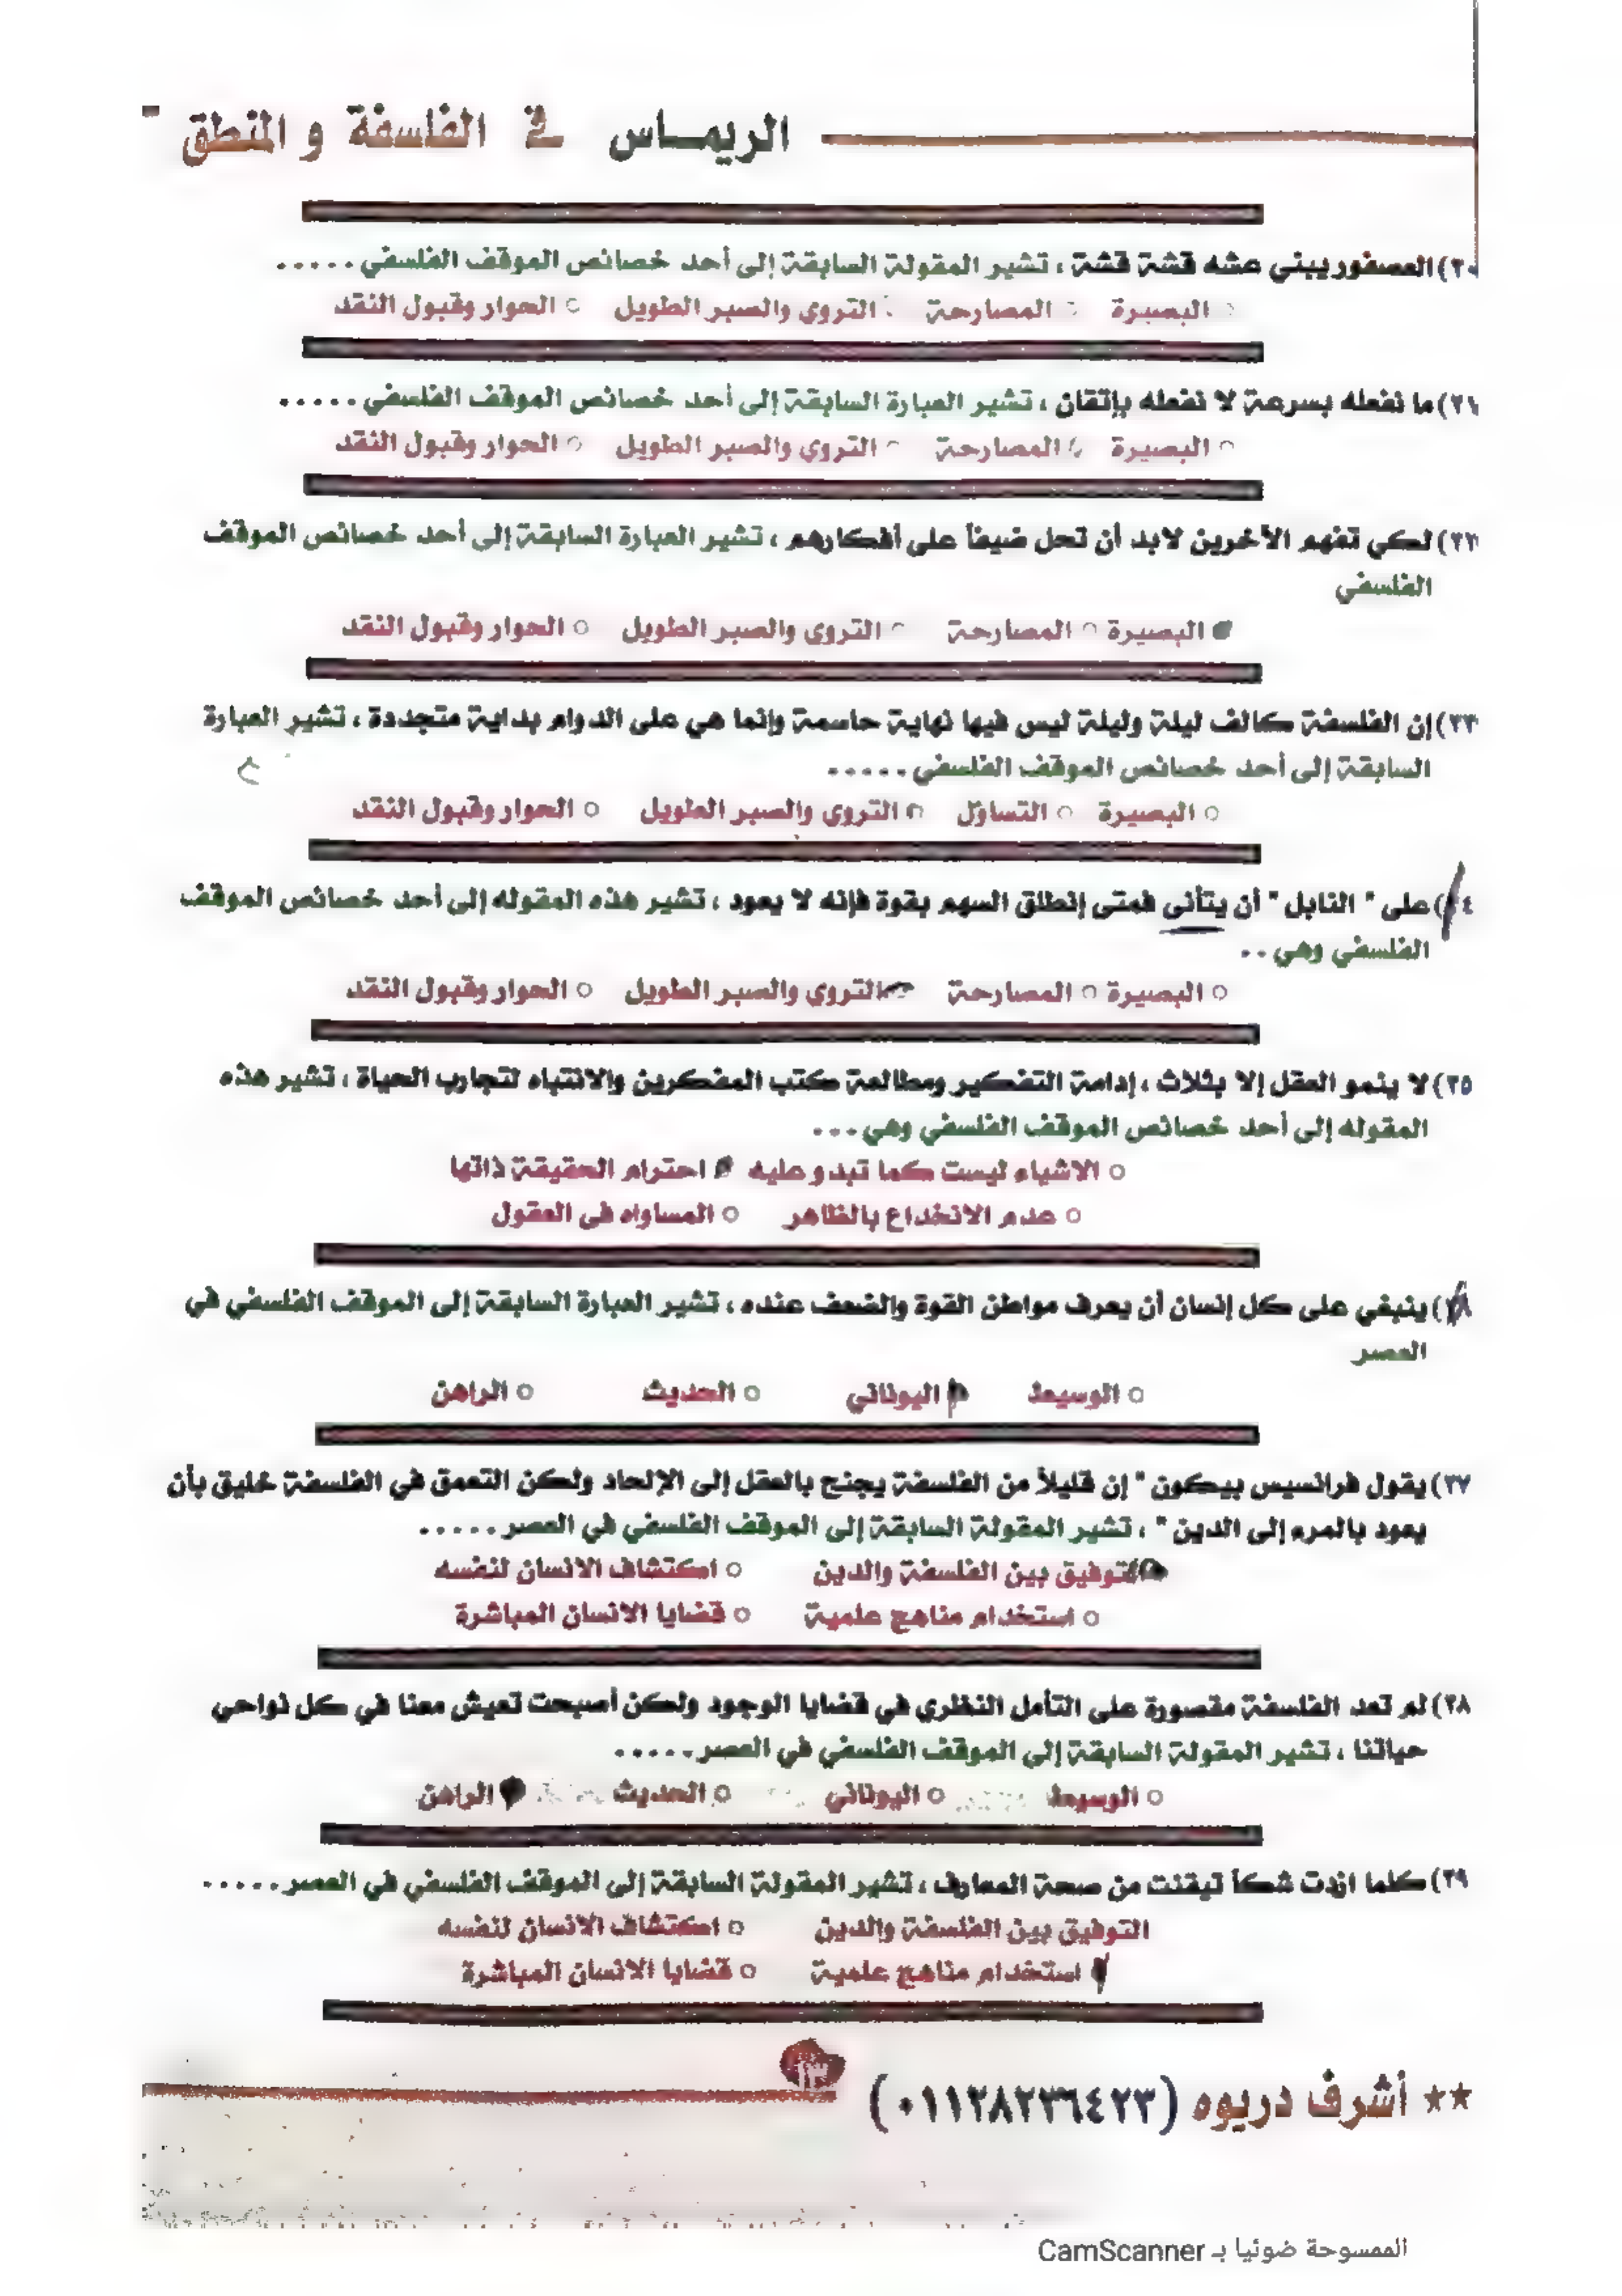 الريماس في الفلسفة و المنطق
٢٠) العصفور يبني عشه قشة قشة ، تشير المقولة السابقة إلى أحد خصائص الموقف الفلسفي .....
البصيرة ○ المصارحة ○ التروى والصبر الطويل ○ الحوار وقبول النقد
٢١) ما نفعله بسرعة لا نفعله بإتقان ، تشير العبارة السابقة إلى أحد خصائص الموقف الفلسفي .....
○ البصيرة ○ المصارحة ○ التروى والصبر الطويل ○ الحوار وقبول النقد
٢٢) لكي تفهم الآخرين لابد أن تحل ضيفاً على أفكارهم ، تشير العبارة السابقة إلى أحد خصائص الموقف
الفلسفي
البصيرة ○ المصارحة ○ التروى والصبر الطويل ○ الحوار وقبول النقد
٢٣) إن الفلسفة كالف ليلة وليلة ليس فيها نهاية حاسمة وإنما هي على الدوام بداية متجددة ، تشير العبارة
السابقة إلى أحد خصائص الموقف الفلسفي .....
○ البصيرة ○ التساؤل ○ التروى والصبر الطويل ○ الحوار وقبول النقد
٤) على " النابل " أن يتأنى فمتى إنطلق السهم بقوة فإنه لا يعود ، تشير هذه المقوله إلى أحد خصائص الموقف
الفلسفي وهي ..
○ البصيرة ○ المصارحة التروى والصبر الطويل ○ الحوار وقبول النقد
٢٥) لا ينمو العقل إلا بثلاث ، إدامة التفكير ومطالعة كتب المفكرين والانتباه لتجارب الحياة ، تشير هذه
المقوله إلى أحد خصائص الموقف الفلسفي وهي ...
○ الاشياء ليست كما تبدو عليه احترام الحقيقة ذاتها
○ عدم الانخداع بالظاهر ○ المساواه فى العقول
) ينبغي على كل إنسان أن يعرف مواطن القوة والضعف عنده ، تشير العبارة السابقة إلى الموقف الفلسفي في
العصر
○ الوسيط اليوناني ○ الحديث ○ الراهن
٢٧) يقول فرانسيس بيكون " إن قليلاً من الفلسفة يجنح بالعقل إلى الإلحاد ولكن التعمق في الفلسفة خليق بأن
يعود بالمرء إلى الدين " ، تشير المقولة السابقة إلى الموقف الفلسفي في العصر .....
التوفيق بين الفلسفة والدين ○ اكتشاف الانسان لنفسه
○ استخدام مناهج علمية ○ قضايا الانسان المباشرة
٢٨) لم تعد الفلسفة مقصورة على التأمل النظري في قضايا الوجود ولكن أصبحت تعيش معنا في كل نواحي
حياتنا ، تشير المقولة السابقة إلى الموقف الفلسفي في العصر .....
○ الوسيط ○ اليوناني ○ الحديث الراهن
٢٩) كلما ازدت شكاً تيقنت من صحة المعارف ، تشير المقولة السابقة إلى الموقف الفلسفي في العصر .....
التوفيق بين الفلسفة والدين ○ اكتشاف الانسان لنفسه
استخدام مناهج علمية ○ قضايا الانسان المباشرة
١٣
** أشرف دربوه (٠١١٢٨٢٣٦٤٢٣)
الممسوحة ضوئيا بـ CamScanner